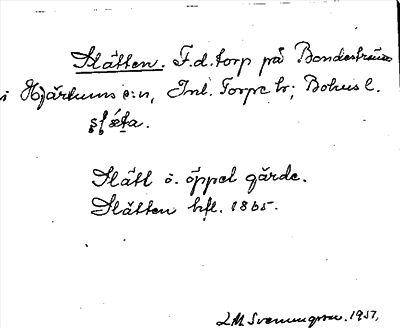 Slätten. F.d. torp på Bondeström
i Hjärtums s:n, Inl. Torpe hr; Bohus l.
Slätt o. öppet gärde.
Slätten bfl. 1865.
L.M. Svenungsson. 1957.